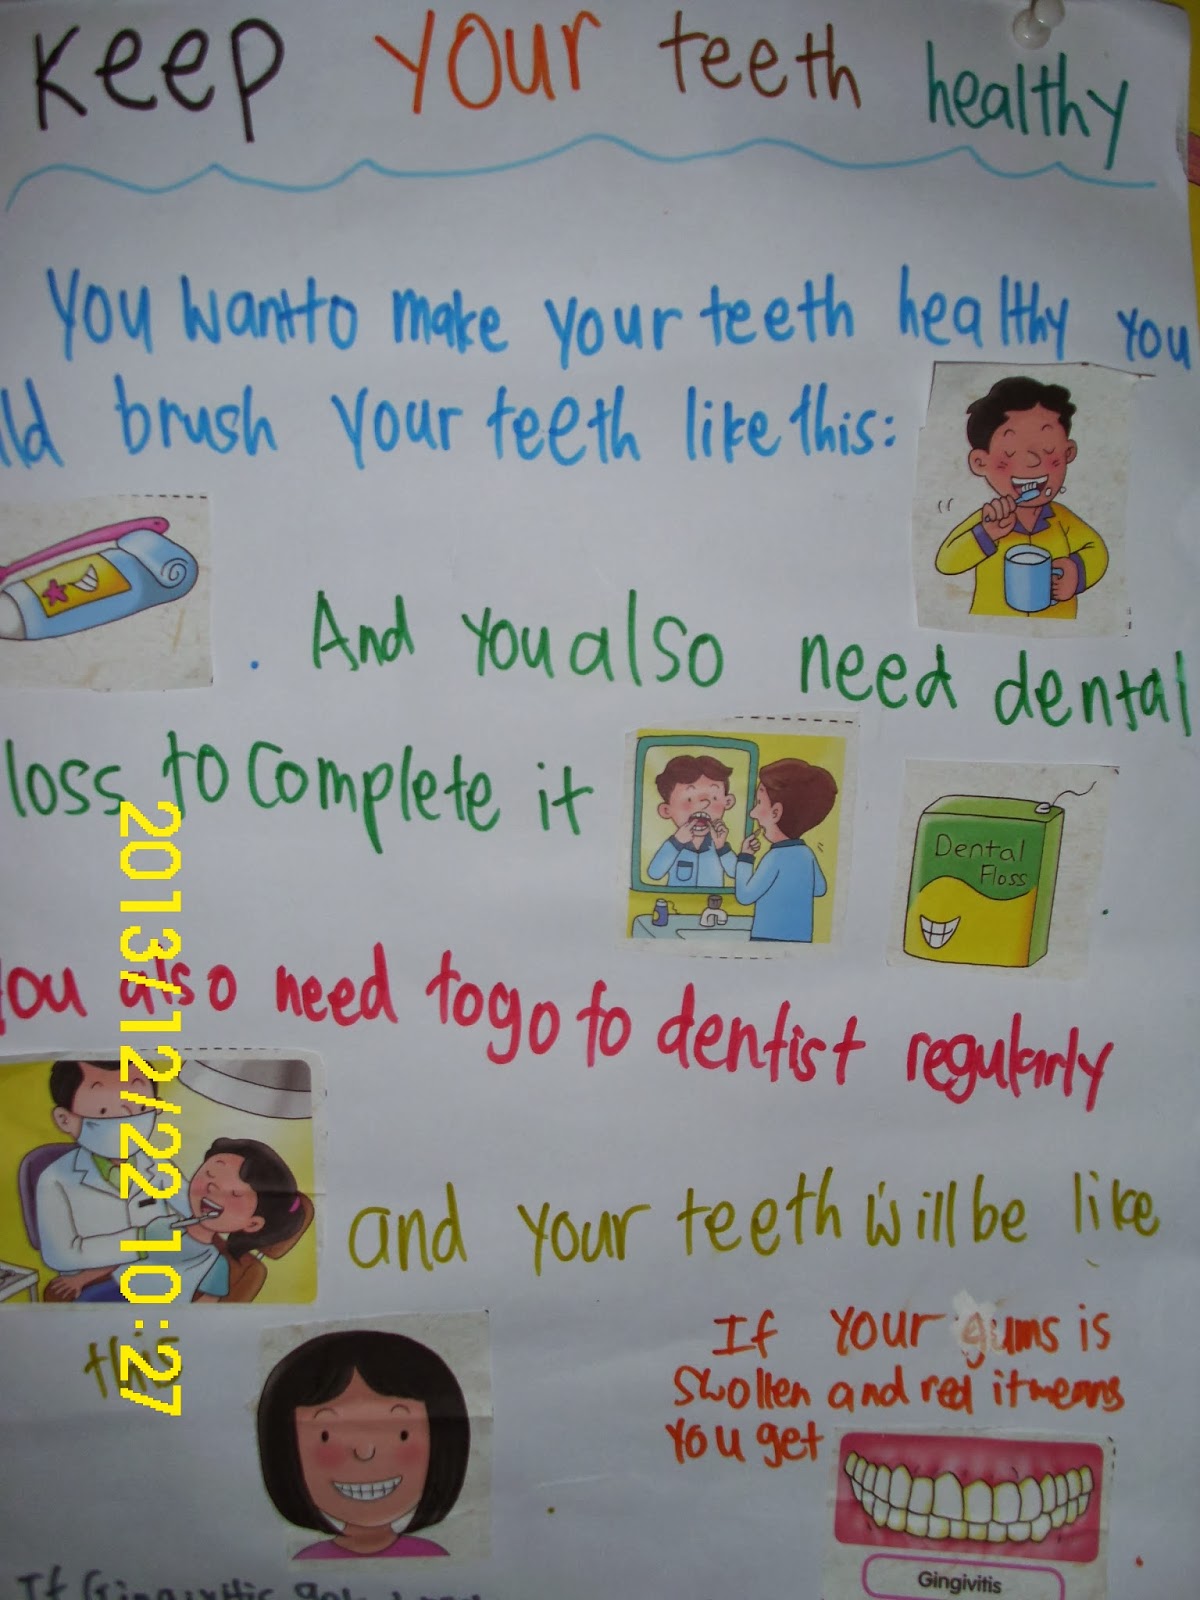 Keep your teeth healthy
You want to make your teeth healthy you
ld brush your teeth like this:
. And you also need dental
loss to complete it
Dental
Floss
.
you also need to go to dentist regularly
and your teeth will be like
this
If your gums is
swollen and red it means
you get
Gingivitis
If Gingivitis
2013/12/22 10:27